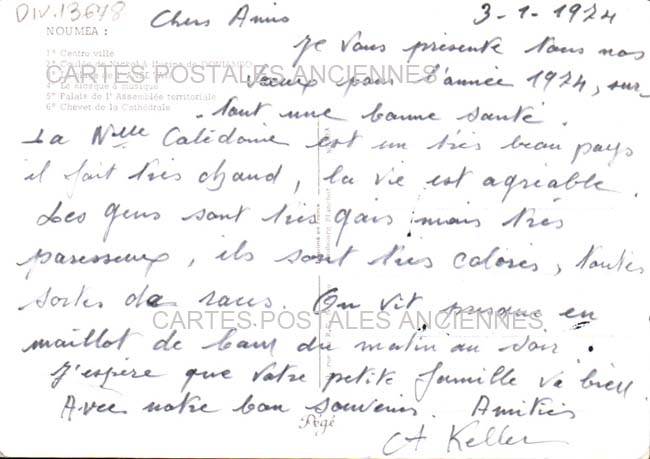 DIV.13648
Chers Amis 3-1-1974
NOUMEA :
Je vous présente tous nos
1° Centre ville
2° Coulée de Nickel à l'usine de DONIAMBO
CARTES POSTALES ANCIENNES
vœux pour l'année 1974, sur-
4° Le kiosque à musique
5° Palais de l'Assemblée territoriale
6° Chevet de la Cathédrale
tout une bonne santé.
La Nlle Calédonie est un très beau pays
il fait très chaud, la vie est agréable.
Les gens sont très gais mais très
paresseux, ils sont très colorés, toutes
sortes de races. On vit presque en
CARTES POSTALES ANCIENNES
maillot de bain du matin au soir.
J'espère que votre petite famille va bien.
Avec notre bon souvenir. Amitiés
Pogé
A Keller